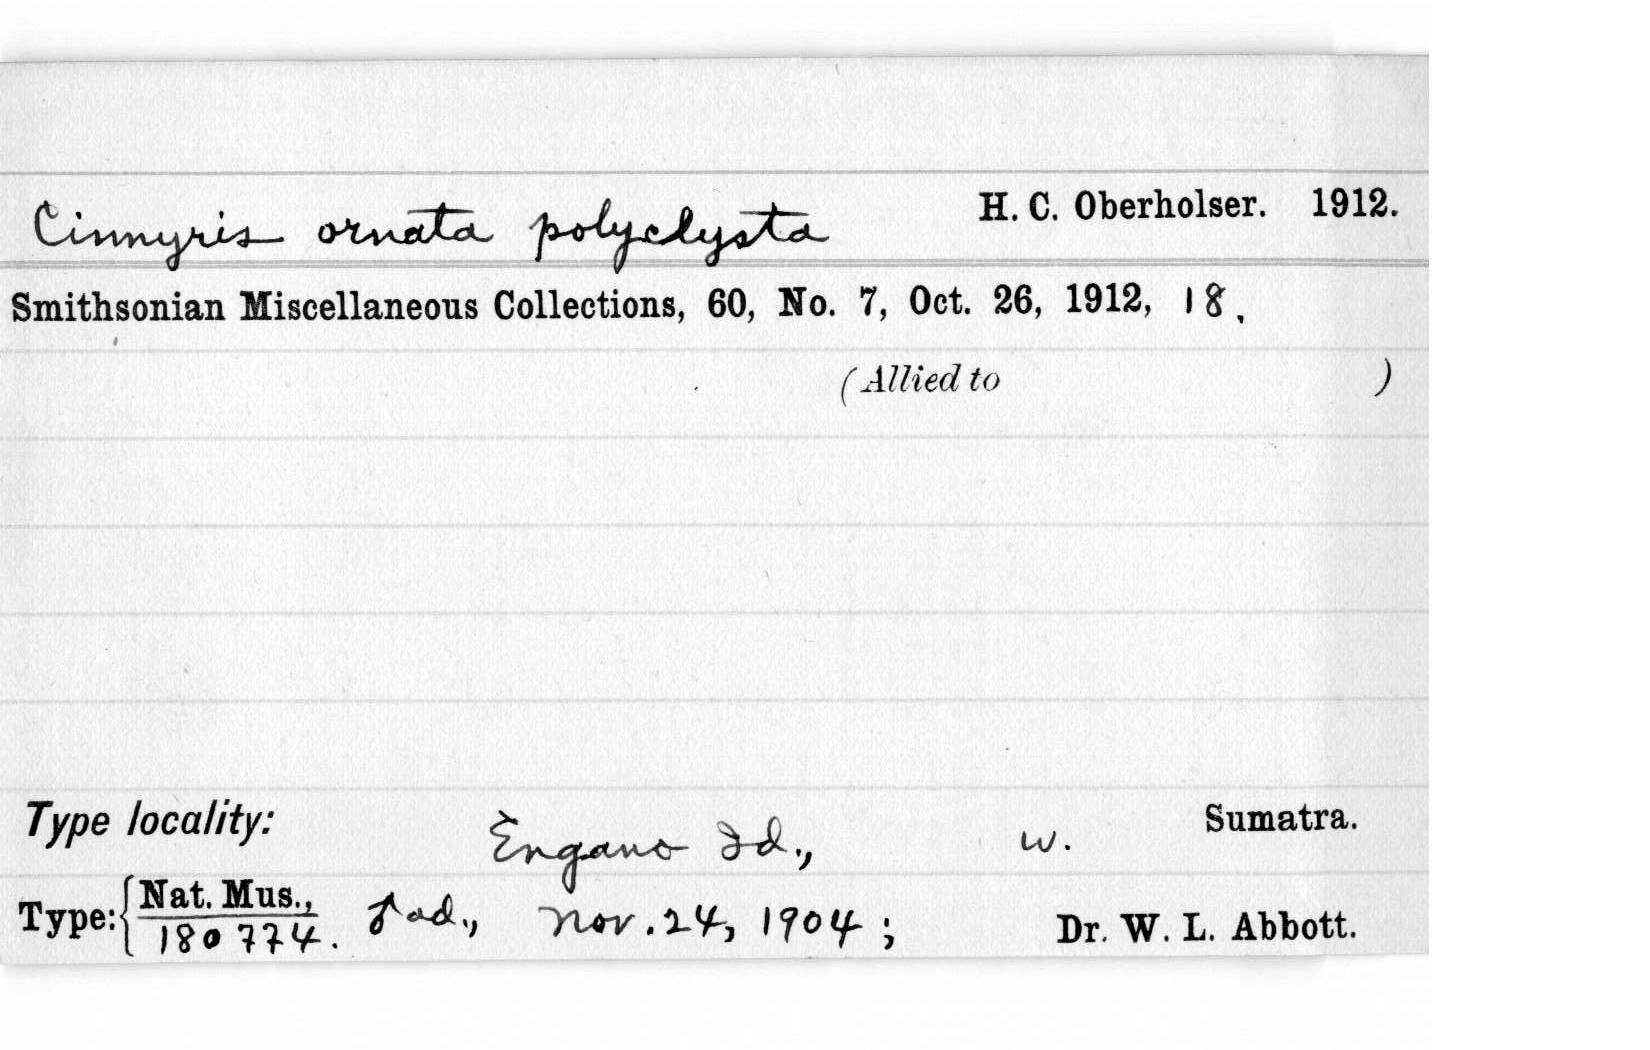 Cinnyris ornata polyclysta H. C. Oberholser. 1912.
Smithsonian Miscellaneous Collections, 60, No. 7, Oct. 26, 1912, 18.
(Allied to )
Type locality: Engano Id., w. Sumatra.
Type: { Nat. Mus., 180774. ♂ ad., Nov. 24, 1904; Dr. W. L. Abbott.